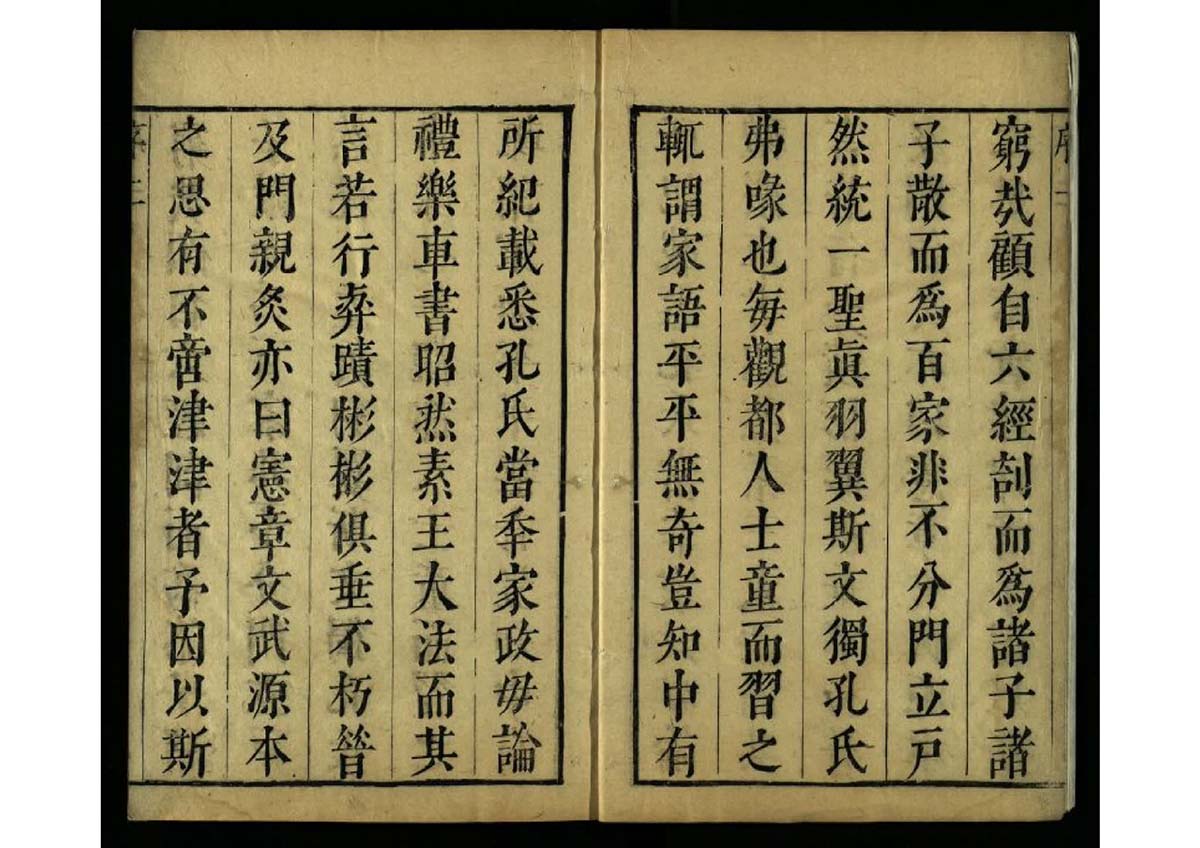 窮㢤顧自六經刮而爲諸子諸
子散而爲百家非不分門立戸
然統一聖眞羽翼斯文獨孔氏
弗喙也每觀都人士童而習之
輒謂家語平平無奇豈知中有
所紀載悉孔氏當秊家政毋論
禮樂車書昭然素王大法而其
言若行弈蹟彬彬俱垂不朽晉
及門親炙亦曰憲章文武源本
之思有不啻津津者予因以斯
序二